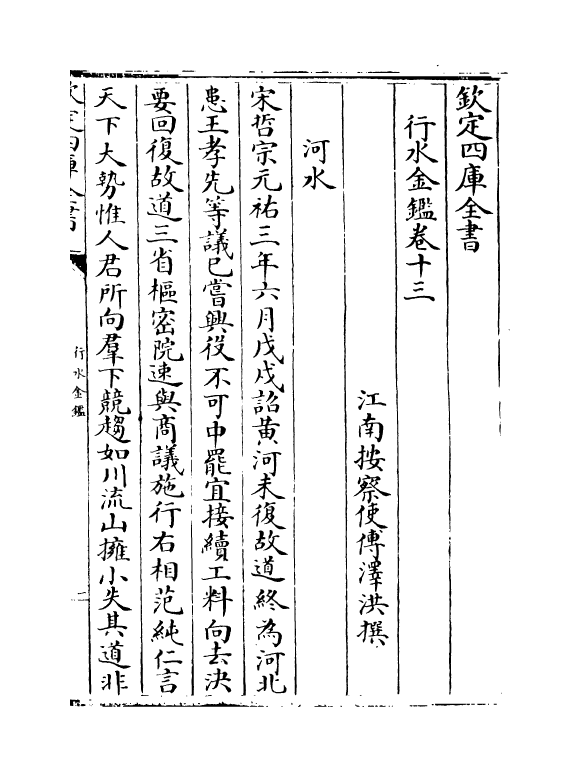 欽定四庫全書
行水金鑑卷十三
江南按察使傅澤洪撰
河水
宋哲宗元祐三年六月戊戌詔黃河未復故道終為河北
患王孝先等議已嘗興役不可中罷宜接續工料向去決
要回復故道三省樞密院速與商議施行右相范純仁言
天下大勢惟人君所向羣下競趨如川流山擁小失其道非
欽定四庫全書
行水金鑑